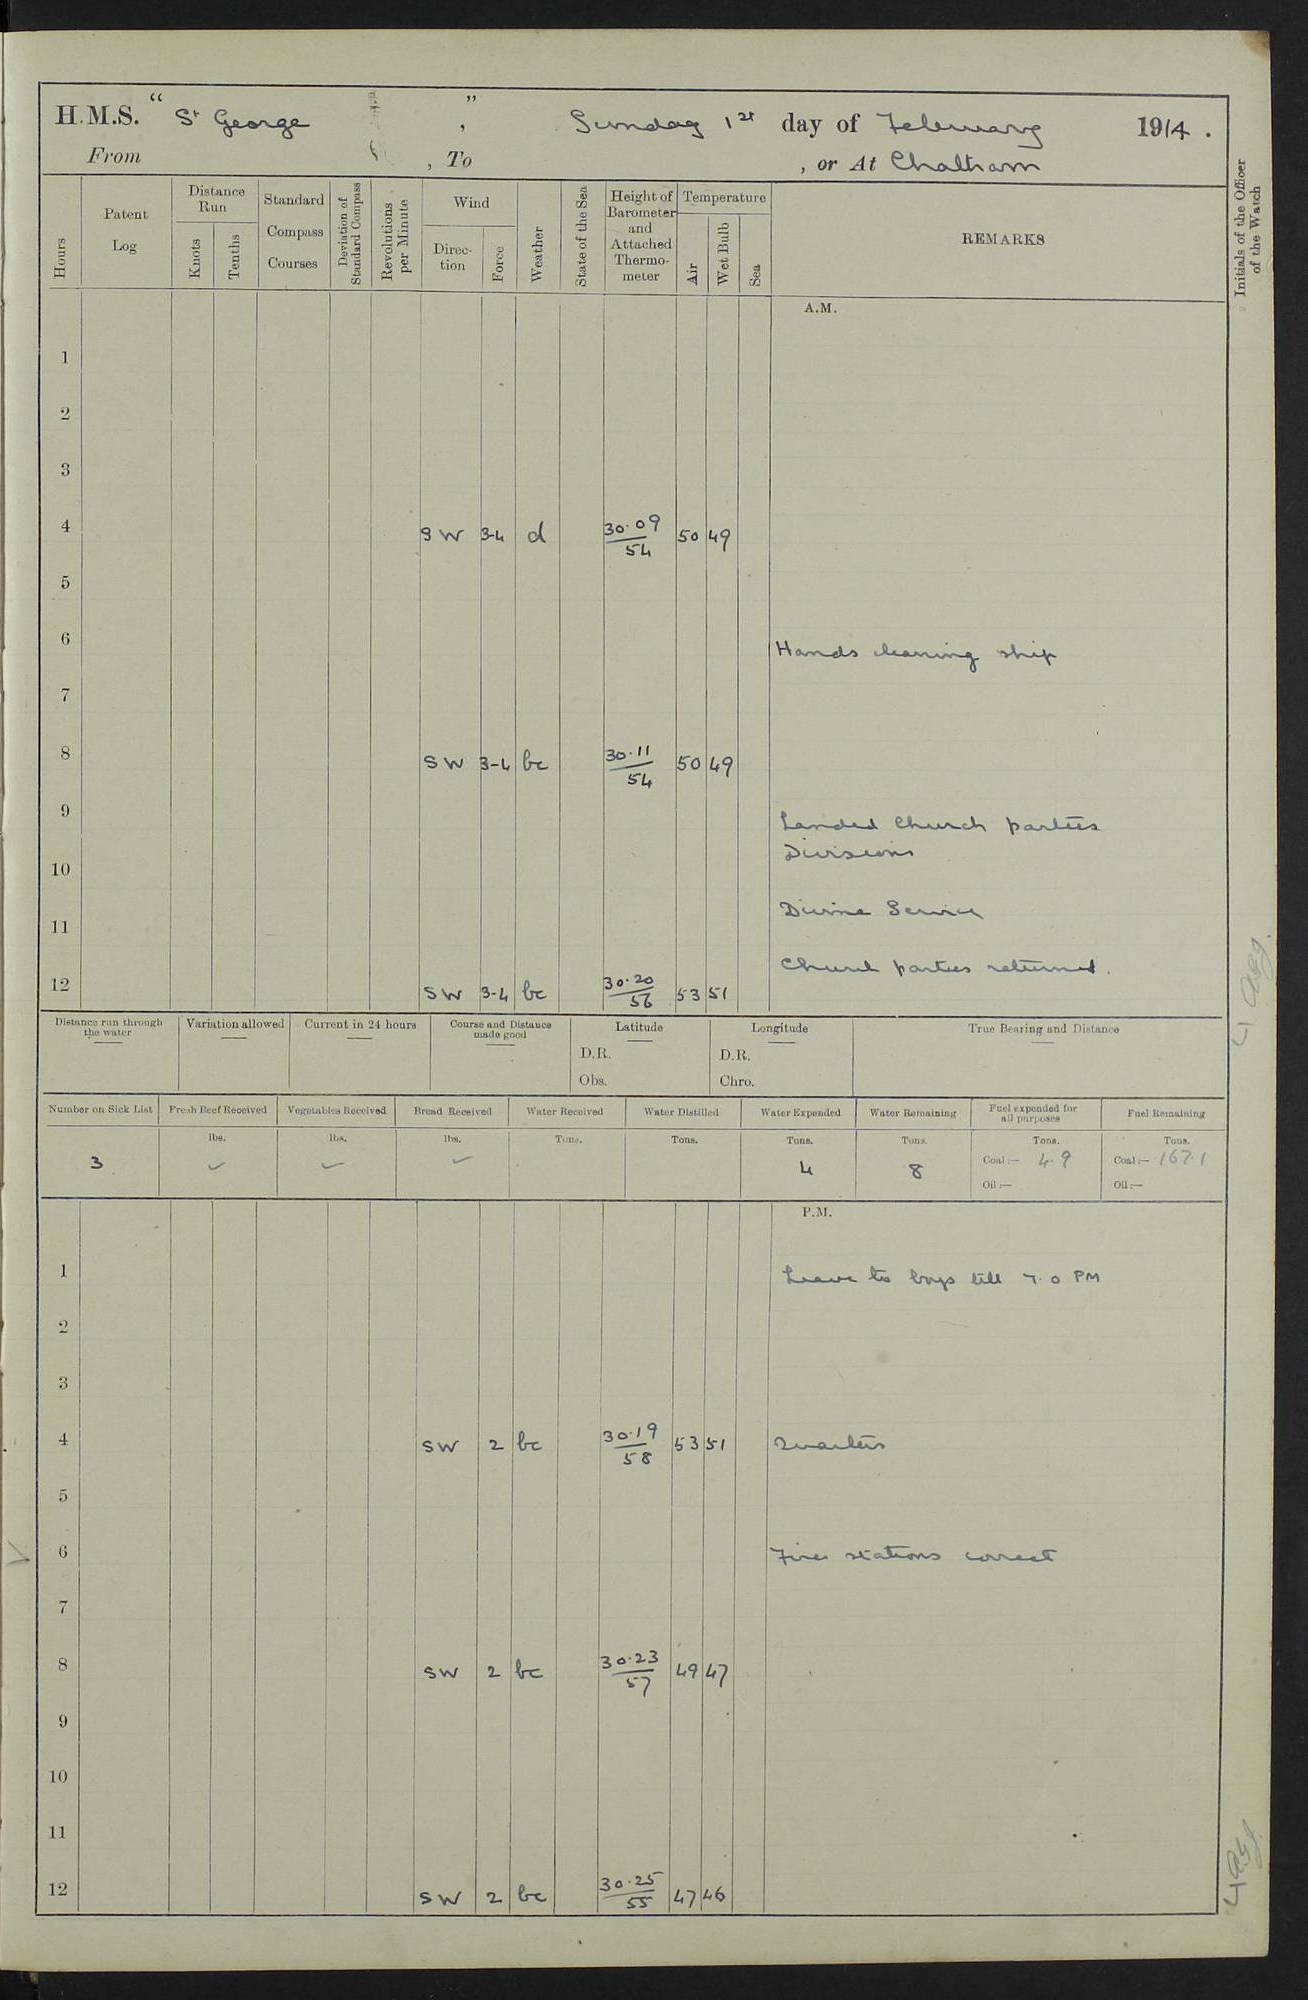 H.M.S. “ St George ” , Sunday 1st day of February 1914 .
From , To , or At Chatham
Hours
Patent Log
Distance Run
Knots
Tenths
Standard Compass Courses
Deviation of Standard Compass
Revolutions per Minute
Wind
Direc-tion
Force
Weather
State of the Sea
Height of Barometer and Attached Thermo-meter
Temperature
Air
Wet Bulb
Sea
REMARKS
Initials of the Officer of the Watch
A.M.
1
2
3
4 SW 3-4 d 30.09 54 50 49
5
6
Hands cleaning ship
7
8 SW 3-4 bc 30.11 54 50 49
9
Landed Church parties
Divisions
10
Divine Service
11
Church parties returned.
12 SW 3-4 bc 30.20 56 53 51
Distance run through the water
Variation allowed
Current in 24 hours
Course and Distance made good
Latitude
D.R.
Obs.
Longitude
D.R.
Chro.
True Bearing and Distance
Number on Sick List Fresh Beef Received Vegetables Received Bread Received Water Received Water Distilled Water Expended Water Remaining Fuel expended for all purposes Fuel Remaining
lbs. lbs. lbs. Tons. Tons. Tons. Tons. Tons. Tons.
3 ✓ ✓ ✓ 4 8 Coal:— 4.9 Coal:— 167.1
Oil:— Oil:—
P.M.
1 Leave to boys till 7.0 PM
2
3
4 SW 2 bc 30.19 58 53 51 Quarters
5
6 Fire stations correct
7
8 SW 2 bc 30.23 57 49 47
9
10
11
12 SW 2 bc 30.25 55 47 46